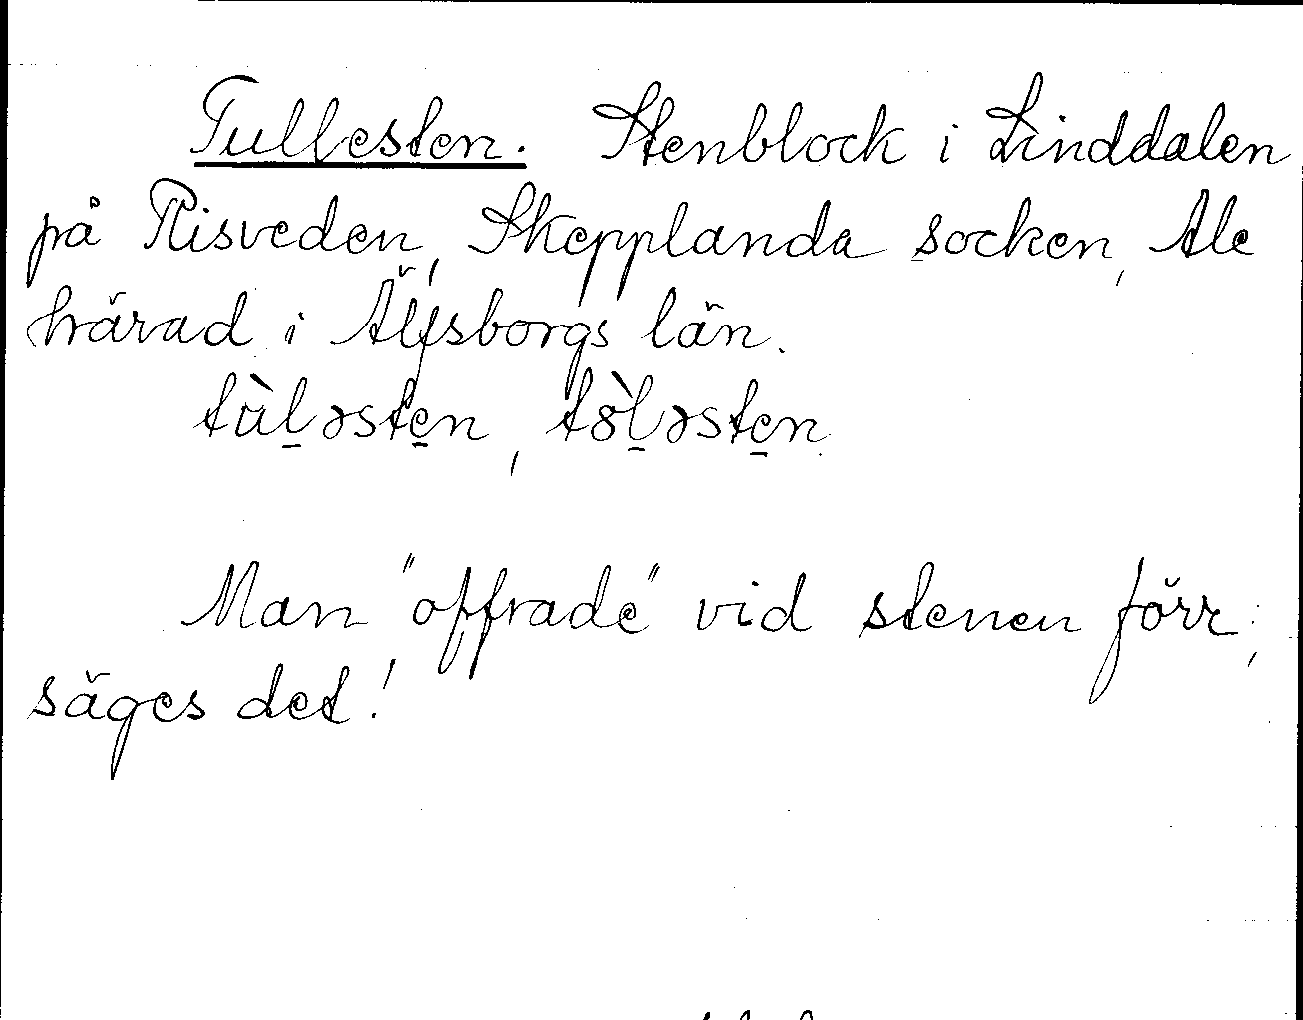 Tullesten. Stenblock i Linddalen
på Risveden, Skepplanda socken, Ale
härad i Älfsborgs län.
tùl̠əste̠n, tòl̠əste̠n.
Man "offrade" vid stenen förr;
säges det!